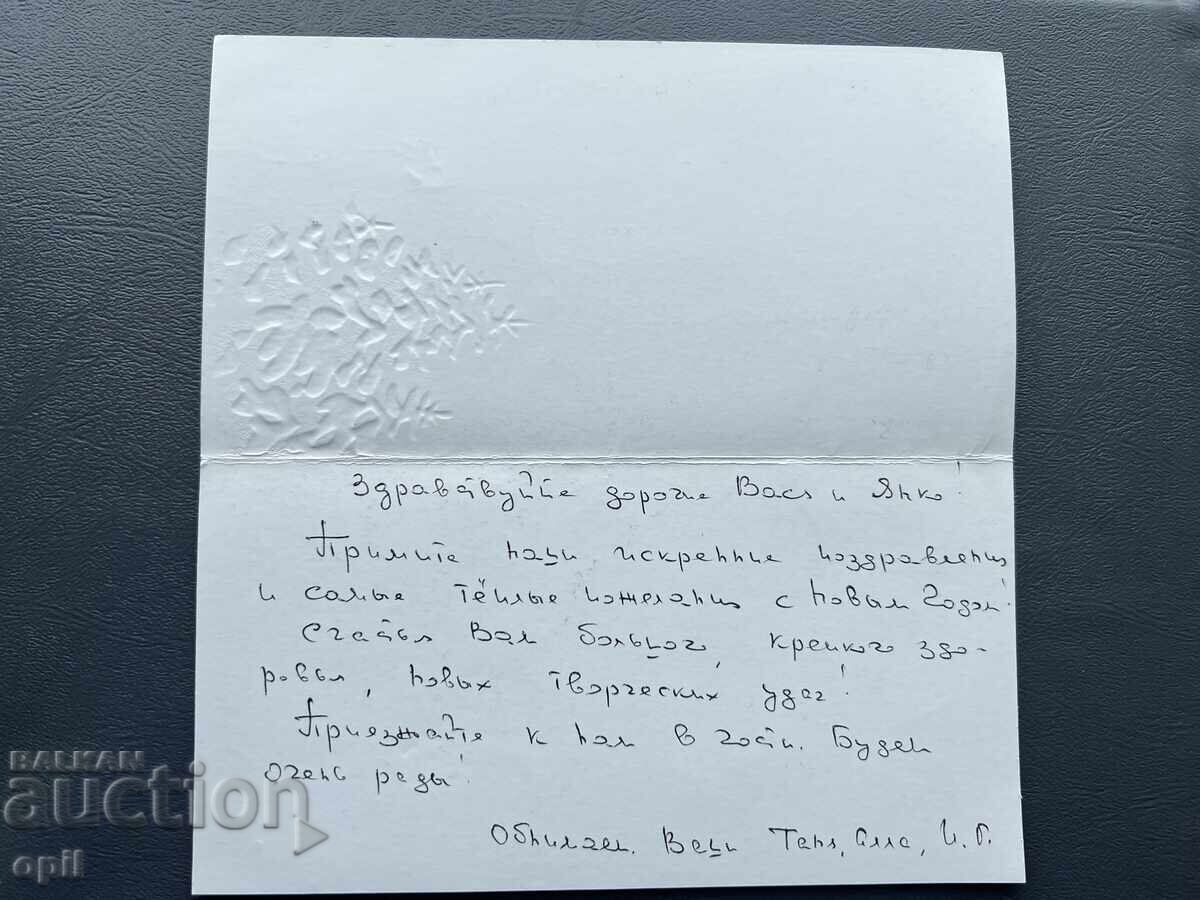 Здравствуйте дорогие Вася и Янко!
Примите наши искренние поздравления
и самые тёплые пожелания с Новым Годом!
Счастья Вам большого, крепкого здо-
ровья, новых творческих удач!
Приезжайте к нам в гости. Будем
очень рады!
Обнимаем. Ваши Таня, Алла, И. Г.
BALKAN
auction
opil